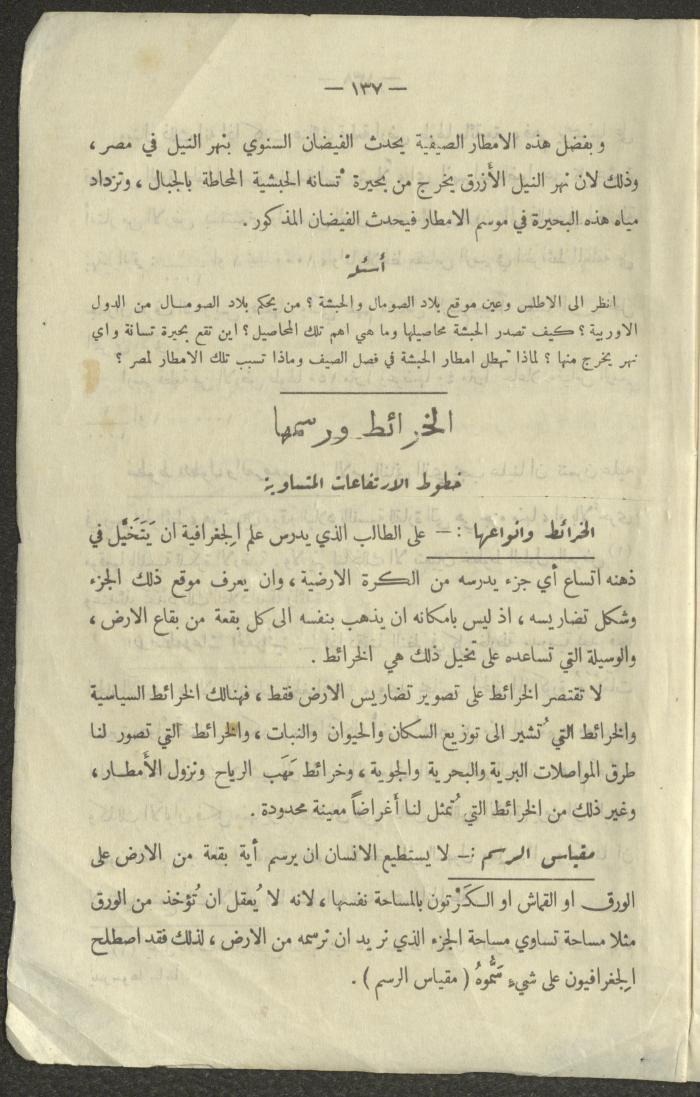 — ١٣٧ —
وبفضل هذه الامطار الصيفية يحدث الفيضان السنوي بنهر النيل في مصر ،
وذلك لان نهر النيل الأزرق يخرج من بحيرة تسانه الحبشية المحاطة بالجبال ، وتزداد
مياه هذه البحيرة في موسم الامطار فيحدث الفيضان المذكور .
أسئلة
انظر الى الاطلس وعين موقع بلاد الصومال والحبشة ؟ من يحكم بلاد الصومال من الدول
الاوربية ؟ كيف تصدر الحبشة محاصيلها وما هي اهم تلك المحاصيل ؟ اين تقع بحيرة تسانة واي
نهر يخرج منها ؟ لماذا تهطل امطار الحبشة في فصل الصيف وماذا تسبب تلك الامطار لمصر ؟
الخرائط ورسمها
خطوط الارتفاعات المتساوية
الخرائط وانواعها : — على الطالب الذي يدرس علم الجغرافية ان يَتَخَيَّل في
ذهنه اتساع أي جزء يدرسه من الكرة الارضية ، وان يعرف موقع ذلك الجزء
وشكل تضاريسه ، اذ ليس بامكانه ان يذهب بنفسه الى كل بقعة من بقاع الارض ،
والوسيلة التي تساعده على تخيل ذلك هي الخرائط .
لا تقتصر الخرائط على تصوير تضاريس الارض فقط ، فهنالك الخرائط السياسية
والخرائط التي تُشير الى توزيع السكان والحيوان والنبات ، والخرائط التي تصور لنا
طرق المواصلات البرية والبحرية والجوية ، وخرائط مَهَب الرياح ونزول الأَمطار ،
وغير ذلك من الخرائط التي تُمثل لنا أَغراضاً معينة محدودة .
مقياس الرسم : — لا يستطيع الانسان ان يرسم أية بقعة من الارض على
الورق او القماش او الكَرْتون بالمساحة نفسها ، لانه لا يُعقل ان تُؤخذ من الورق
مثلا مساحة تساوي مساحة الجزء الذي نريد ان نرسمه من الارض ، لذلك فقد اصطلح
الجغرافيون على شيءٍ سَمُّوهُ ( مقياس الرسم ) .